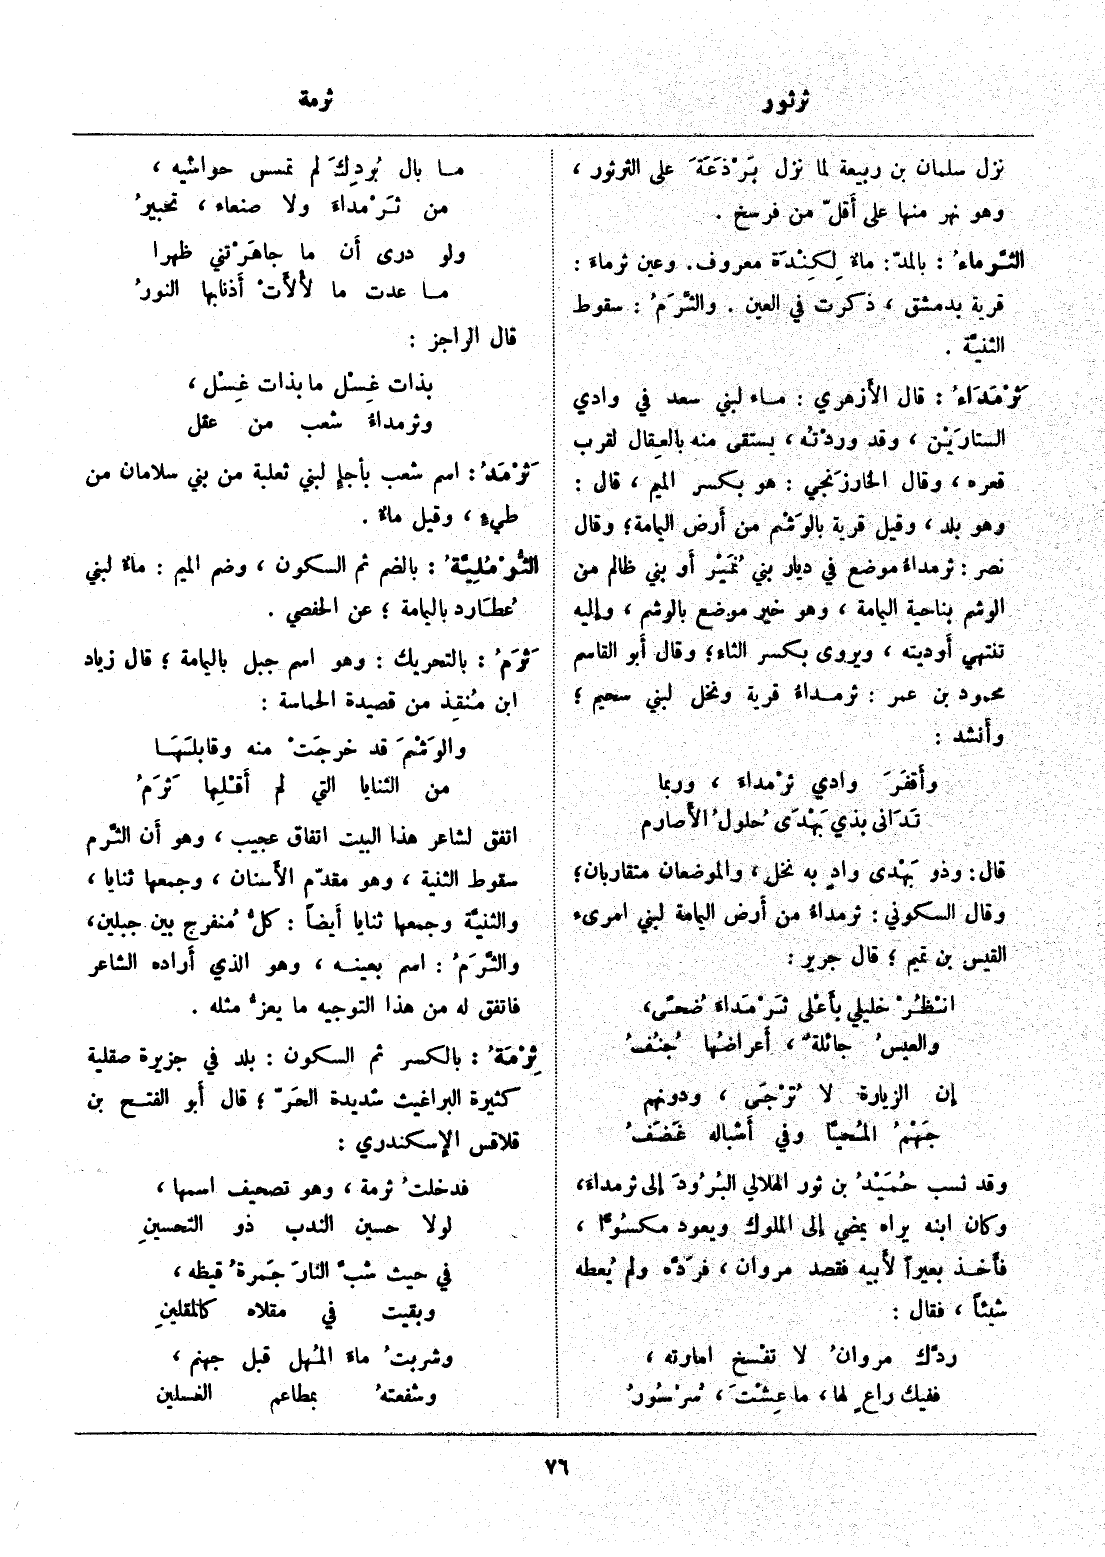 ثرثور
ثرمة
نزل سلمان بن ربيعة لما نزل بَرْذَعَةَ على الثرثور ،
وهو نهر منها على أقلّ من فرسخ .
الثَّرماءُ : بالمدّ : ماءٌ لِكِنْدَة معروف. وعين ثرماءَ :
قرية بدمشق ، ذكرت في العين . والثَّرَمُ : سقوط
الثنيّة .
ثَرْمَدَاءُ : قال الأزهري : ماء لبني سعد في وادي
الستارَيْن ، وقد وردْتُه ، يستقى منه بالعِقال لقرب
قعره ، وقال الخارزَنجي : هو بكسر الميم ، قال :
وهو بلد ، وقيل قرية بالوَشْم من أرض اليمامة ؛ وقال
نصر : ثرمداءُ موضع في ديار بني نُمَيْر أو بني ظالم من
الوشم بناحية اليمامة ، وهو خير موضع بالوشم ، وإليه
تنتهي أوديته ، ويروى بكسر الثاء ؛ وقال أبو القاسم
محمود بن عمر : ثرمداءُ قرية ونخل لبني سحيم ؛
وأنشد :
وأقفَرَ وادي ثرْمداءَ ، وربما
تَدَانى بذي بَهْدَى حُلولُ الأصارم
قال : وذو بَهْدى وادٍ به نخل ، والموضعان متقاربان ؛
وقال السكوني : ثرمداءُ من أرض اليمامة لبني امرىء
القيس بن تميم ؛ قال جرير :
انْظُرْ خليلي بأعْلى ثَرْمَداءَ ضُحىً ،
والعيسُ جائلةٌ ، أعراضُها جُنُفُ
إن الزيارة لا تُرْجَى ، ودونهم
جَهْمُ المُحيّا وفي أشباله غَضَفُ
وقد نسب حُمَيْدُ بن ثور الهلالي البُرُودَ إلى ثرمداءَ ،
وكان ابنه يراه يمضي إلى الملوك ويعود مكسُوّاً ،
فأخذ بعيراً لأبيه فقصد مروان ، فردّه ولم يُعطه
شيئاً ، فقال :
ردّك مروانُ لا تفْسخ امارته ،
ففيك راعٍ لها ، ما عِشْتَ ، سُرْسُورُ
ما بال بُردِكَ لم تمسس حواشيه ،
من ثَرْمداءَ ولا صنعاء ، تحبيرُ
ولو درى أن ما جاهَرْتني ظهرا
ما عدت ما لألأتْ أذنابها النورُ
قال الراجز :
بذات غِسْل ما بذات غِسْل ،
وثرمداءُ شعب من عقل
ثَرْمَدُ : اسم شعب بأجإٍ لبني ثعلبة من بني سلامان من
طيءٍ ، وقيل ماءٌ .
الثُّرْمُلِيَّةُ : بالضم ثم السكون ، وضم الميم : ماءٌ لبني
عُطارد باليمامة ؛ عن الحفصي .
ثَرَمُ : بالتحريك : وهو اسم جبل باليمامة ؛ قال زياد
ابن مُنقِذ من قصيدة الحماسة :
والوَشْمَ قد خرجَتْ منه وقابلَهَا
من الثنايا التي لم أقْلِها ثَرَمُ
اتفق لشاعر هذا البيت اتفاق عجيب ، وهو أن الثَّرم
سقوط الثنية ، وهو مقدّم الأسنان ، وجمعها ثنايا ،
والثنيّة وجمعها ثنايا أيضاً : كلُّ مُنفرج بين جبلين ،
والثَّرَمُ : اسم بعينه ، وهو الذي أراده الشاعر
فاتفق له من هذا التوجيه ما يعزُّ مثله .
ثِرْمَةُ : بالكسر ثم السكون : بلد في جزيرة صقلية
كثيرة البراغيث شديدة الحَرّ ؛ قال أبو الفتح بن
قلاقس الإسكندري :
فدخلتُ ثرمة ، وهو تصحيف اسمها ،
لولا حسين الندب ذو التحسينِ
في حيث شبَّ النارَ جَمرةُ قيظه ،
وبقيت في مقلاه كالمقلينِ
وشربتُ ماءَ المُهل قبل جهنم ،
وشفعتهُ بمطاعم الغسلين
٧٦